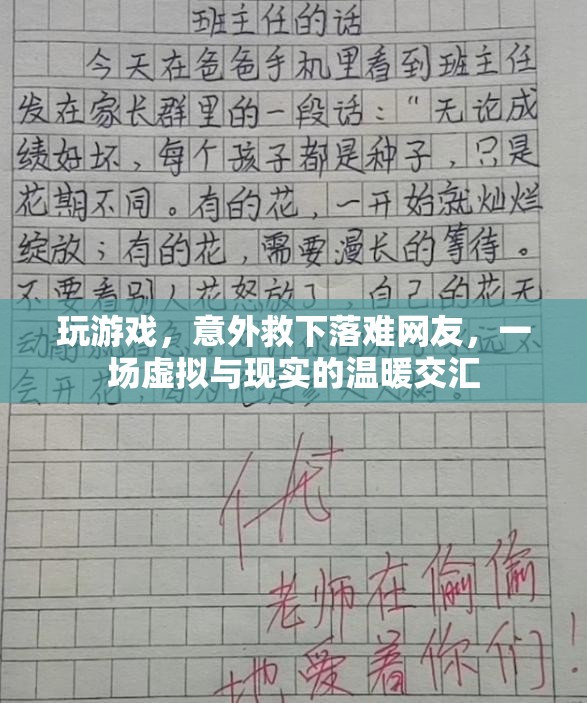 班主任的话
今天在爸爸手机里看到班主任
发在家长群里的一段话：“无论成
绩好坏，每个孩子都是种子，只是
花期不同。有的花，一开始就灿烂
绽放；有的花，需要漫长的等待。
不要看别人花怒放了，自己的花无
玩游戏，意外救下落难网友，一
场虚拟与现实的温暖交汇
会开花，
优+
老师在偷偷
地爱着你们！